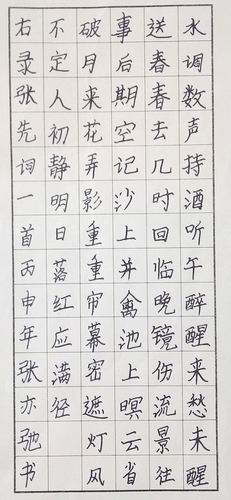 水调数声持酒听午醉醒来愁未醒
送春春去几时回临晚镜伤流景往
事后期空记沙上并禽池上暝云省
破月来花弄影重重帘幕密遮灯风
不定人初静明日落红应满径
右录张先词一首丙申年张亦弛书